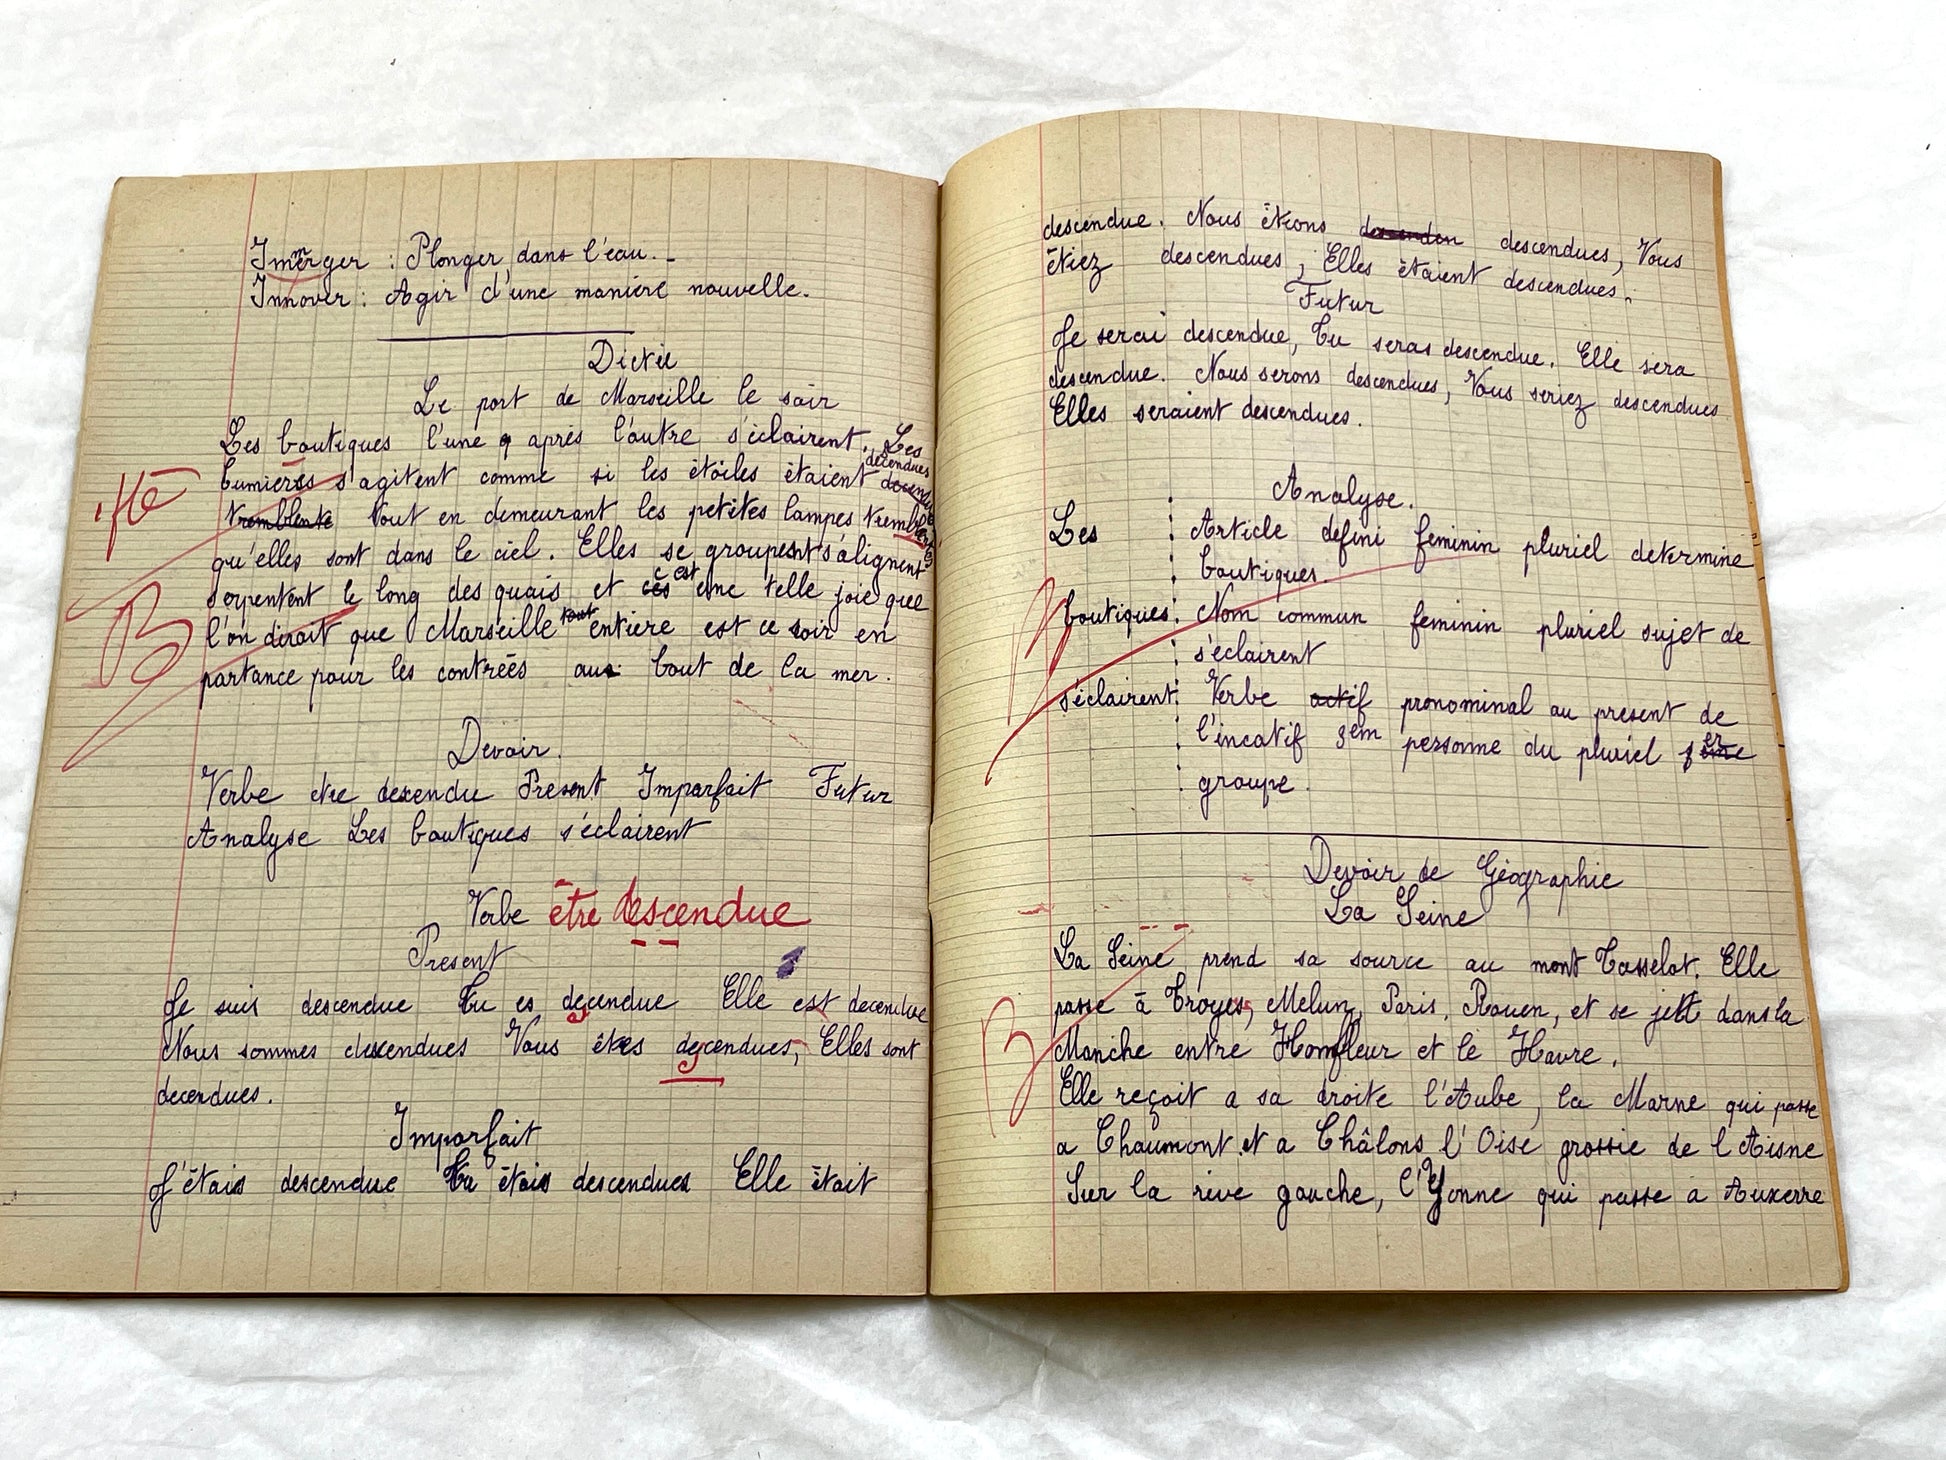 Immerger : Plonger dans l'eau.
Innover : Agir d'une manière nouvelle.
Dictée
Le port de Marseille le soir
Les boutiques l'une après l'autre s'éclairent. Les
lumières s'agitent comme si les étoiles étaient décendues
tremblente tout en demeurant les petites lampes
qu'elles sont dans le ciel. Elles se groupent s'alignent
serpentent le long des quais et c'est une telle joie que
l'on dirait que Marseille tout entière est ce soir en
partance pour les contrées au bout de la mer.
Devoir.
Verbe etre descendu Présent Imparfait Futur
Analyse Les boutiques s'éclairent
Verbe être descendue
Present
Je suis descendue Tu es decendue Elle est decendue
Nous sommes descendues Vous êtes decendues, Elles sont
decendues.
Imparfait
J'étais descendue Tu étais descendues Elle était
descendue. Nous étions descendues, Vous
étiez descendues, Elles étaient descendues.
Futur
Je serai descendue, Tu seras descendue. Elle sera
descendue. Nous serons descendues, Vous seriez descendues
Elles seraient descendues.
Analyse.
Les : Article défini feminin pluriel determine
boutiques.
boutiques : Nom commun feminin pluriel sujet de
s'éclairent
s'éclairent : Verbe actif pronominal au present de
l'incatif 3em personne du pluriel 1er
groupe.
Devoir de Géographie
La Seine
La Seine prend sa source au mont Tasselot. Elle
passe à Troyes, Melun, Paris, Rouen, et se jett dans la
Manche entre Homfleur et le Havre.
Elle reçoit a sa droite l'Aube, la Marne qui passe
a Chaumont et a Châlons l'Oise grossie de l'Aisne
Sur la rive gauche, l'Yonne qui passe à Auxerre